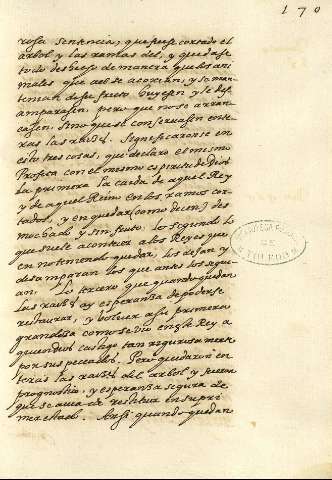 170
rosa sentencia, que fuese cortado el
arbol y las ramas del, y quedase
todo deshecho de manera que los ani
males que a el se acorrian, y se man
tenian de su fruto huyesen y le des
amparasen, pero que no se arran
casen, sino que se conservasen ente
ras las raices. Significaronse en
esto tres cosas, que declaro el mismo
Profeta con el mismo espiritu de Dios
la primera la caida de aquel Rey
y de aquel Reino en los ramos cor
tados, y en quedar (como dicen) des
mochado y sin fruto. lo segundo lo
que suele acontecer a los Reyes que
en no teniendo que dar, los dejan y
desamparan los que antes los segui
an. Lo tercero que quando quedan
las raices ay esperanza de poderse
restaurar, y bolver a su primera
grandeza como se vio en este Rey a
quien dios castigo tan rigurosamente
por sus peccados. Pero quedaron en
teras las raices del arbol y fueron
prognostico, y esperanza segura de
que se avia de restituir en su pri
mer estado. Ansi quando quedan
DE
TOLEDO